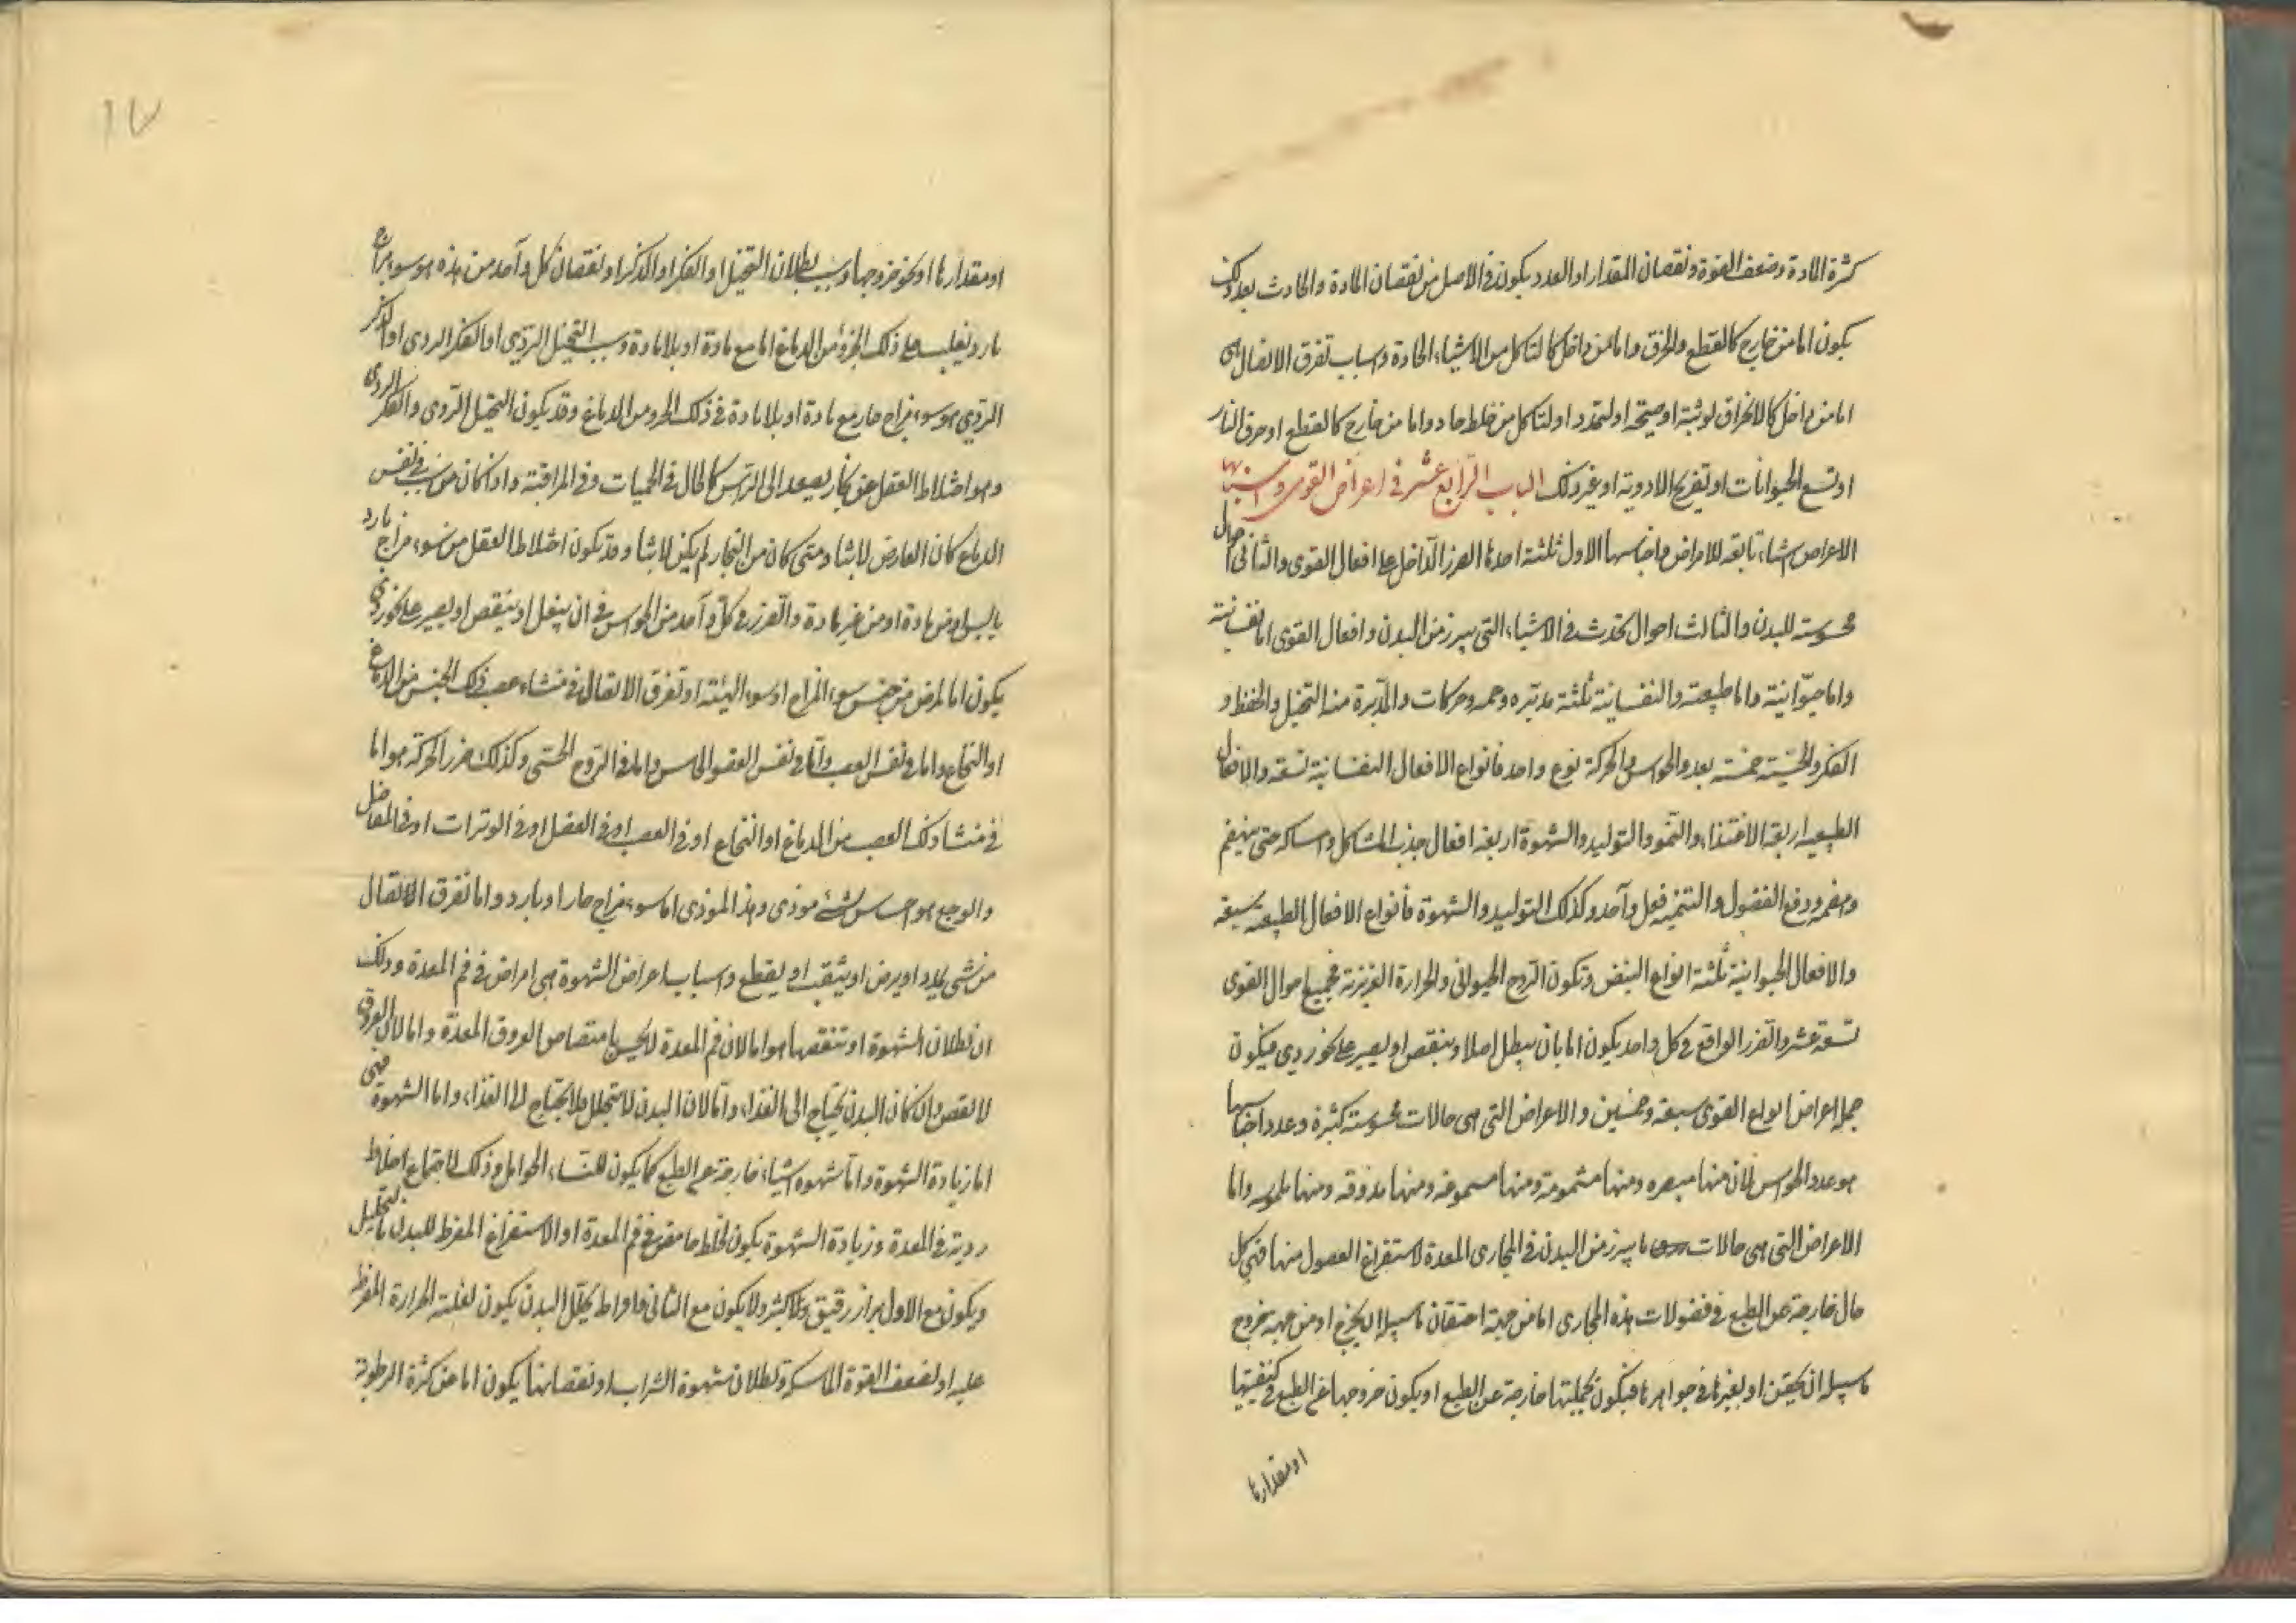 كثرة المادة وضعف القوة ونقصان المقدار او العدد يكون في الاصل من نقصان المادة والحادث بعد ذلك
يكون اما من خارج كالقطع والحرق واما من داخل كالتاكل من الاشياء الحادة واسباب تفرق الاتصال هى
اما من داخل كالانخراق لوثبة او صيحة او لتمدد او لتاكل من خلط حاد واما من خارج كالقطع او حرق النار
او نهش الحيوانات او تقريح الادوية او غير ذلك الباب الرابع عشر في اعراض القوى واسبابها
الاعراض اشياء تابعة للامراض واجناسها الاول ثلثة احدها الضرر الداخل على افعال القوى والثانى احوال
محسوسة للبدن والثالث احوال تحدث في الاشياء التى يبرز من البدن وافعال القوى اما نفسانية
واما حيوانية واما طبيعة والنفسانية ثلثة مدبره وحس وحركات والمدبرة منها التخيل والحفظ و
الفكر والحسية خمسة بعدد الحواس والحركة نوع واحد فانواع الافعال النفسانية تسعة والافعال
الطبيعيه اربعة الاغتذاء والنمو والتوليد والشهوة اربعة افعال جذب المشاكل وامساكه حتى ينهضم
وهضمه ودفع الفضول والتنمية فعل واحد وكذلك التوليد والشهوة فانواع الافعال الطبيعة سبعة
والافعال الحيوانية ثلثة انواع النبض وتكون الروح الحيوانى والحرارة الغريزية فجميع احوال القوى
تسعة عشر والضرر الواقع في كل واحد يكون اما بان يبطل اصلا او ينقص او يصير على نحو ردى فيكون
جملة اعراض انواع القوى سبعة وخمسين والاعراض التى هى حالات محسوسة كثيرة وعدد اجناسها
هو عدد الحواس لان منها مبصره ومنها مشمومة ومنها مسموعه ومنها مذوقه ومنها ملموسه واما
الاعراض التى هى حالات ما يبرز من البدن في المجارى المعدة لاستفراغ الفصول منها فهى كل
حال خارجة عن الطبع في فضولات هذه المجارى اما من جهة احتقان ما سبيله ان يخرج او من جهة خروج
ما سبيله ان يحقن او لغيرها في جواهرها فيكون بجملتها خارجة عن الطبع او يكون خروجها عن الطبع في كيفيتها
او مقدارها
او مقدارها او نحو خروجها وسبب بطلان التخيل او الفكر او الذكر او نقصان كل واحد من هذه هو سوء مزاج
بارد يغلب على ذلك الجزؤ من الدماغ اما مع مادة او بلا مادة وسبب التخيل الردى او الفكر الردى او الذكر
الردى هو سوء مزاج حار مع مادة او بلا مادة في ذلك الجزو من الدماغ وقد يكون التخيل الردى والفكر الردى
وهو اختلاط العقل عن بخار يصعد الى الراس كالحال في الحميات وفى المراقية واذا كان من سبب في نفس
الدماغ كان العارض لابثا ومتى كان من البخار لم يكن لابثا وقد يكون اختلاط العقل من سوء مزاج بارد
يابس او من مادة او من غير مادة والضرر في كل واحد من الحواس في ان يبطل او ينقص او يصير على نحو ردى
يكون اما لمرض من جنس سوء المزاج او سوء الهيئة او تفرق الاتصال في منشاء عصب ذلك الجنس من الدماغ
او النخاع واما في نفس العصب واما في نفس العضو الحاس واما في الروح الحسى وكذلك ضرر الحركة هو اما
في منشا ذلك العصب من الدماغ او النخاع او في العصب او في العضل او في الوترات او في المفاصل
والوجع هو احساس شئ موذى وهذا الموذى اما سوء مزاج حار او بارد واما تفرق الاتصال
من شى يمدد او يرض او يثقب او يقطع واسباب اعراض الشهوة هى امراض في فم المعدة وذلك
ان بطلان الشهوة او تنقصها هو اما لان فم المعدة لا يحس بامتصاص العروق المعدة واما لان العروق
لا تمص وان كان البدن يحتاج الى الغذاء واما لان البدن لا يتحلل فلا يحتاج الى الغذاء واما الشهوة فهى
اما زيادة الشهوة واما شهوه اشياء خارجة عن الطبع كما يكون للنساء الحوامل وذلك لاجتماع اخلاط
ردية في المعدة وزيادة الشهوة يكون لخلط حامض في فم المعدة او الاستفراغ المفرط للبدن بالتحليل
ويكون مع الاول براز رقيق كثير ولا يكون مع الثانى وافراط تحلل البدن يكون لغلبة الحرارة المفرط
عليه او لضعف القوة الماسكة وبطلان شهوة الشراب او نقصانها يكون اما عن كثرة الرطوبة